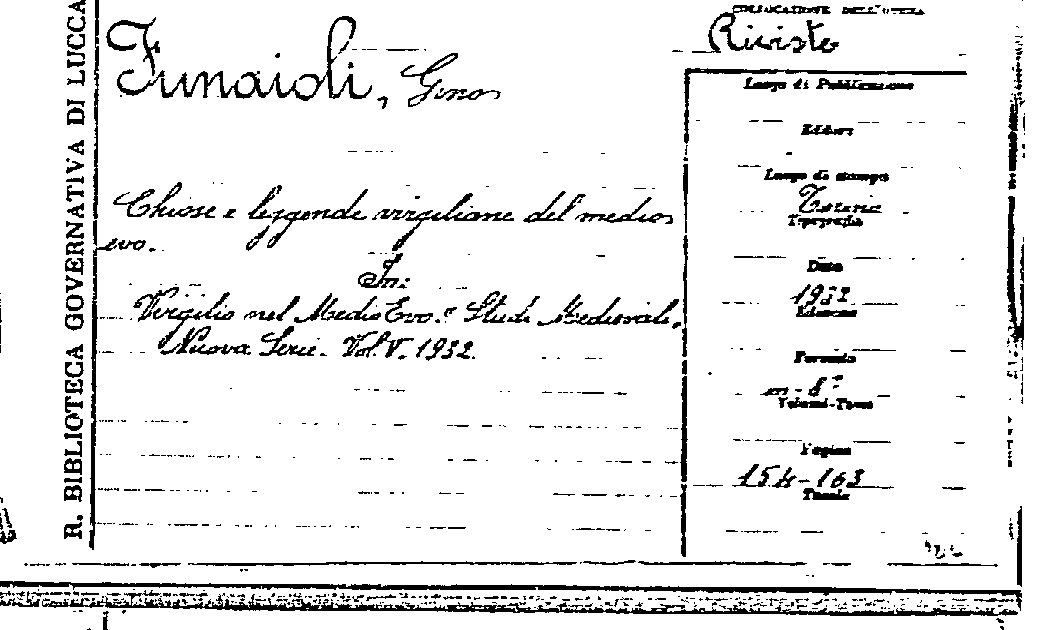 R. BIBLIOTECA GOVERNATIVA DI LUCCA
Funaioli, Gino
Chiose e leggende virgiliane del medio
evo.
In:
Virgilio nel Medio Evo. Studi Medievali,
Nuova Serie. Vol. V. 1932.
COLLOCAZIONE DELL'OPERA
Riviste
Luogo di Pubblicazione
Editori
Luogo di stampa
Torino
Tipografia
Data
1932
Edizione
Formato
in-8°
Volumi-Tomi
Pagine
154-163
Tavole